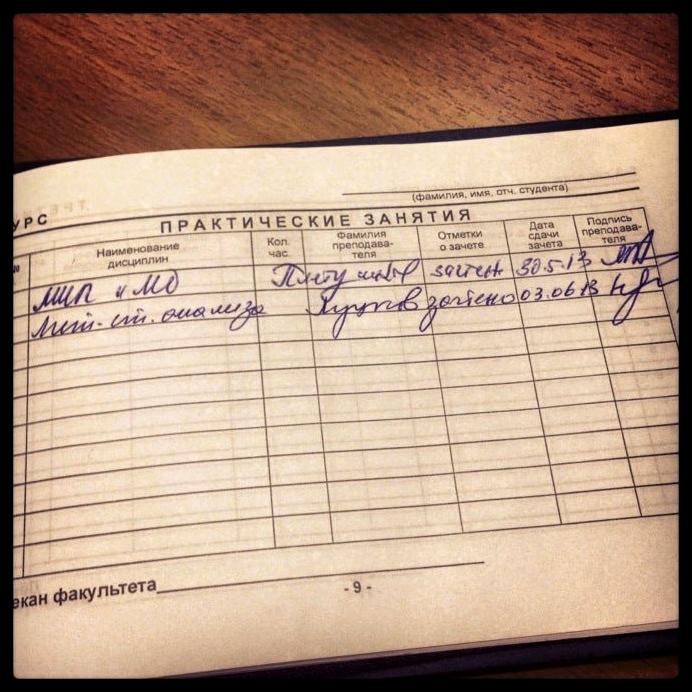 (фамилия, имя, отч. студента)
УРС ПРАКТИЧЕСКИЕ ЗАНЯТИЯ
Наименование дисциплин Кол. час. Фамилия преподава- теля Отметки о зачете Дата сдачи зачета Подпись преподава- теля
МЦП и МО зачтен 30.5.13
Мет. ст. анализа зачтено 03.06.13
екан факультета
- 9 -